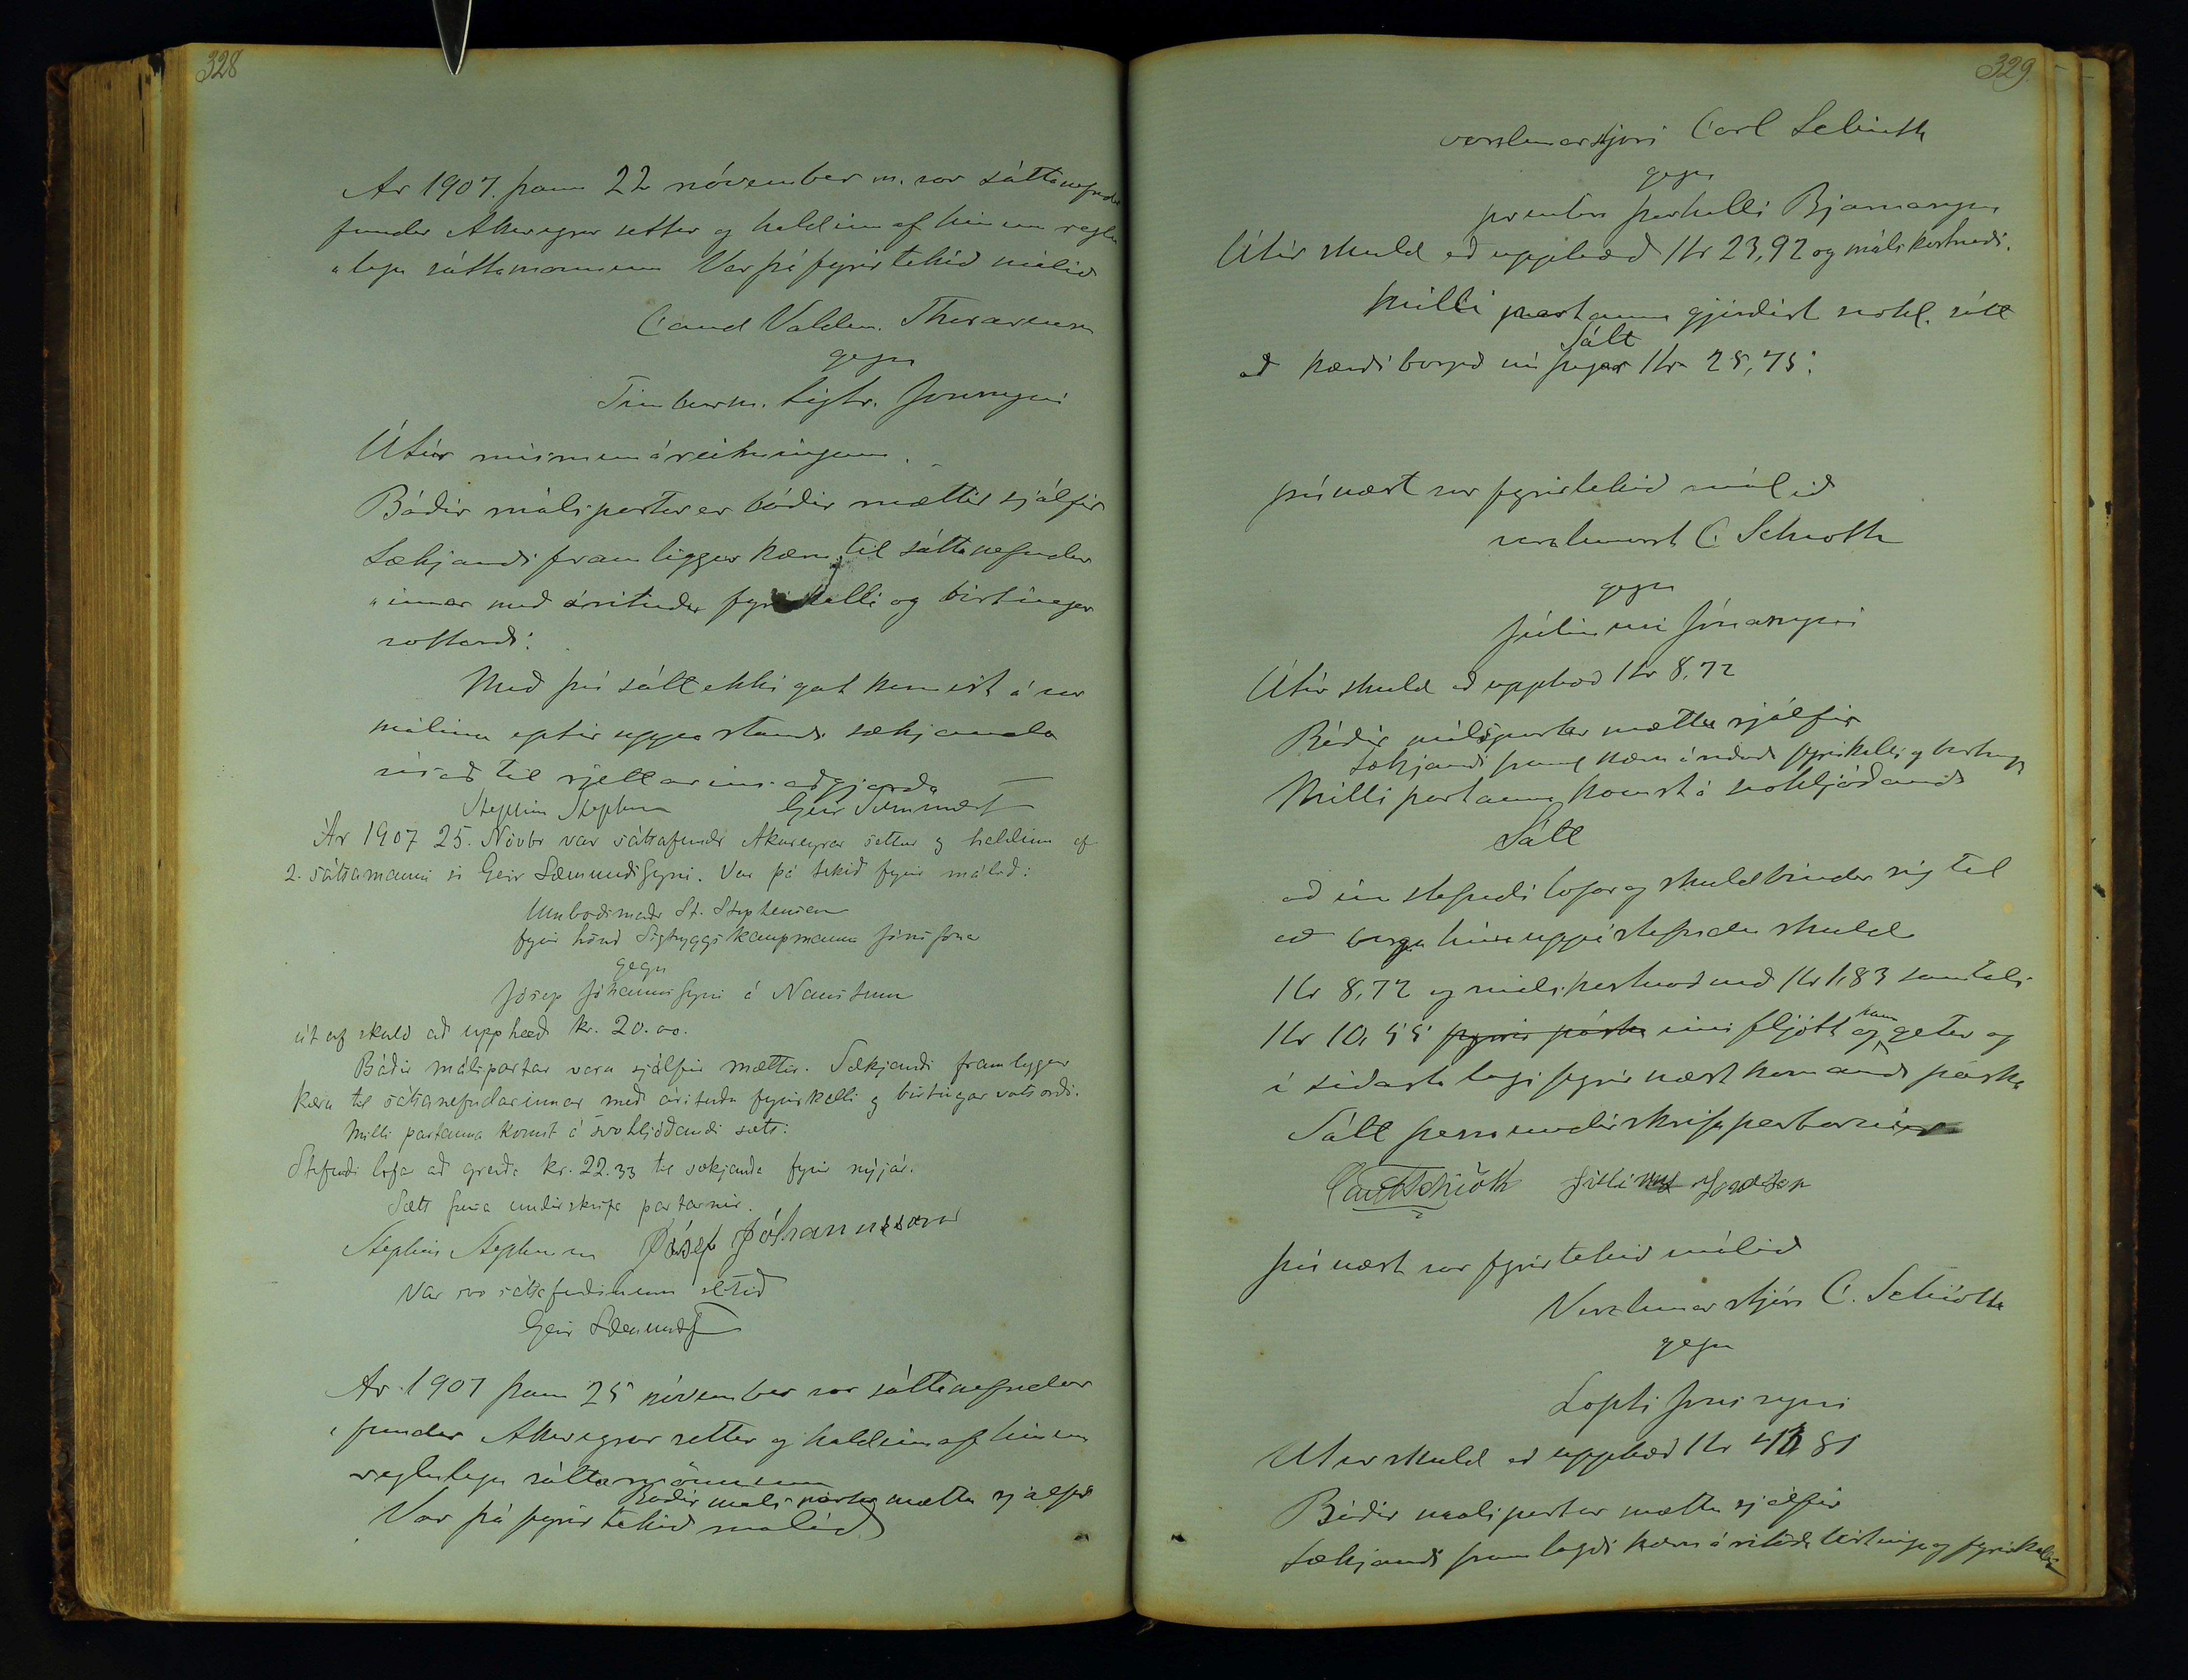 328
Ár 1907. þann 22 nóvember m. var sáttanefndar
fundur Akureyrar settur og haldinn af hinum reglu
"legu sáttamönnum Var þá fyrirtekið málið
Cand Valdem. Thorarensen
gegn
Timburm. Sigtr. Jónssyni
Útúr mismun á reikningum.
Báðir málspartar er báðir mættir sjálfir
Sækjandi framleggur kæru til sáttanefndar
"innar með árituðu fyrirkalli og birtingar
vottorði.
Með því sátt ekki gat komist á var
málinu eptir uppástandi sækjanda
vísað til rjettarins aðgjörða
Stephán Stephensen Geir Sæmundsson
Ár 1907 25. Nóvbr var sáttafundr Akureyrar settur og haldinn af
2. sáttamanni sr Geir Sæmundssyni. Var þá tekið fyrir málið:
Umboðsmaðr St. Stephensen
fyrir hönd Sigtryggs kaupmanns Jónssonar
gegn
Jósep Jóhannssyni á Naustum
út af skuld að upphæð kr. 20.00.
Báðir málspartar voru sjálfir mættir. Sækjandi framleggur
kæru til sáttanefndarinnar með árituðu fyrirkalli og birtingar vottorði.
Milli partanna komst á svohljóðandi sætt:
Stefndi lofar að greiða kr. 22.33 til sækjanda fyrir nýjár.
Sætt þessa undirskrifa partarnir.
Stephán Stephensen Jósef Jóhannsson
Var svo sáttafundinum slitið
Geir Sæmundsson
Ár 1907 þann 25 nóvember var sáttanefndar
"fundur Akureyrar settur og haldinn af hinum
reglulegu sáttamönnum
Báðir málspartar mættu sjálfir
Var þá fyrirtekið málið
329.
verslunarstjóri Carl Schiöth
gegn
prentara Þorhalli Bjarnarsyni
Útúr skuld að upphæð Kr 23,92 og málskostnaði.
Milli partanna gjörðist svohl. sátt
Sátt
að kærði borgað nú þegar Kr 25,75.
Þvínæst var fyrirtekið málið
verslunarst C. Schiöth
gegn
Júlíusi Jónassyni
Útúr skuld að upphæð Kr 8,72
Báðir málspartar mættu sjálfir
Sækjandi framl kæru áritaða fyrirkalli og birtingu
Milli partanna komst á svohljóðandi
Sátt
að inn stefndi lofar og skuldbindur sig til
að borga hina uppástefndu skuld
Kr 8,72 og málskostnað með Kr 1,83 samtals
Kr 10,55 fyrir páska eins fljótt og hann getur og
í síðasta lagi fyrir næst komandi páska
Sátt þessa undirskrifa partarnir
Carl Schiöth Júlíus Jónasson
Þvínæst var fyrirtekið málið
Verslunarstjóri C. Schiöth
gegn
Lopti Jónssyni
Útúr skuld að upphæð Kr 81
Báðir málspartar mættu sjálfir
Sækjandi framlagði kæru áritaða birtingu og fyrirkalli